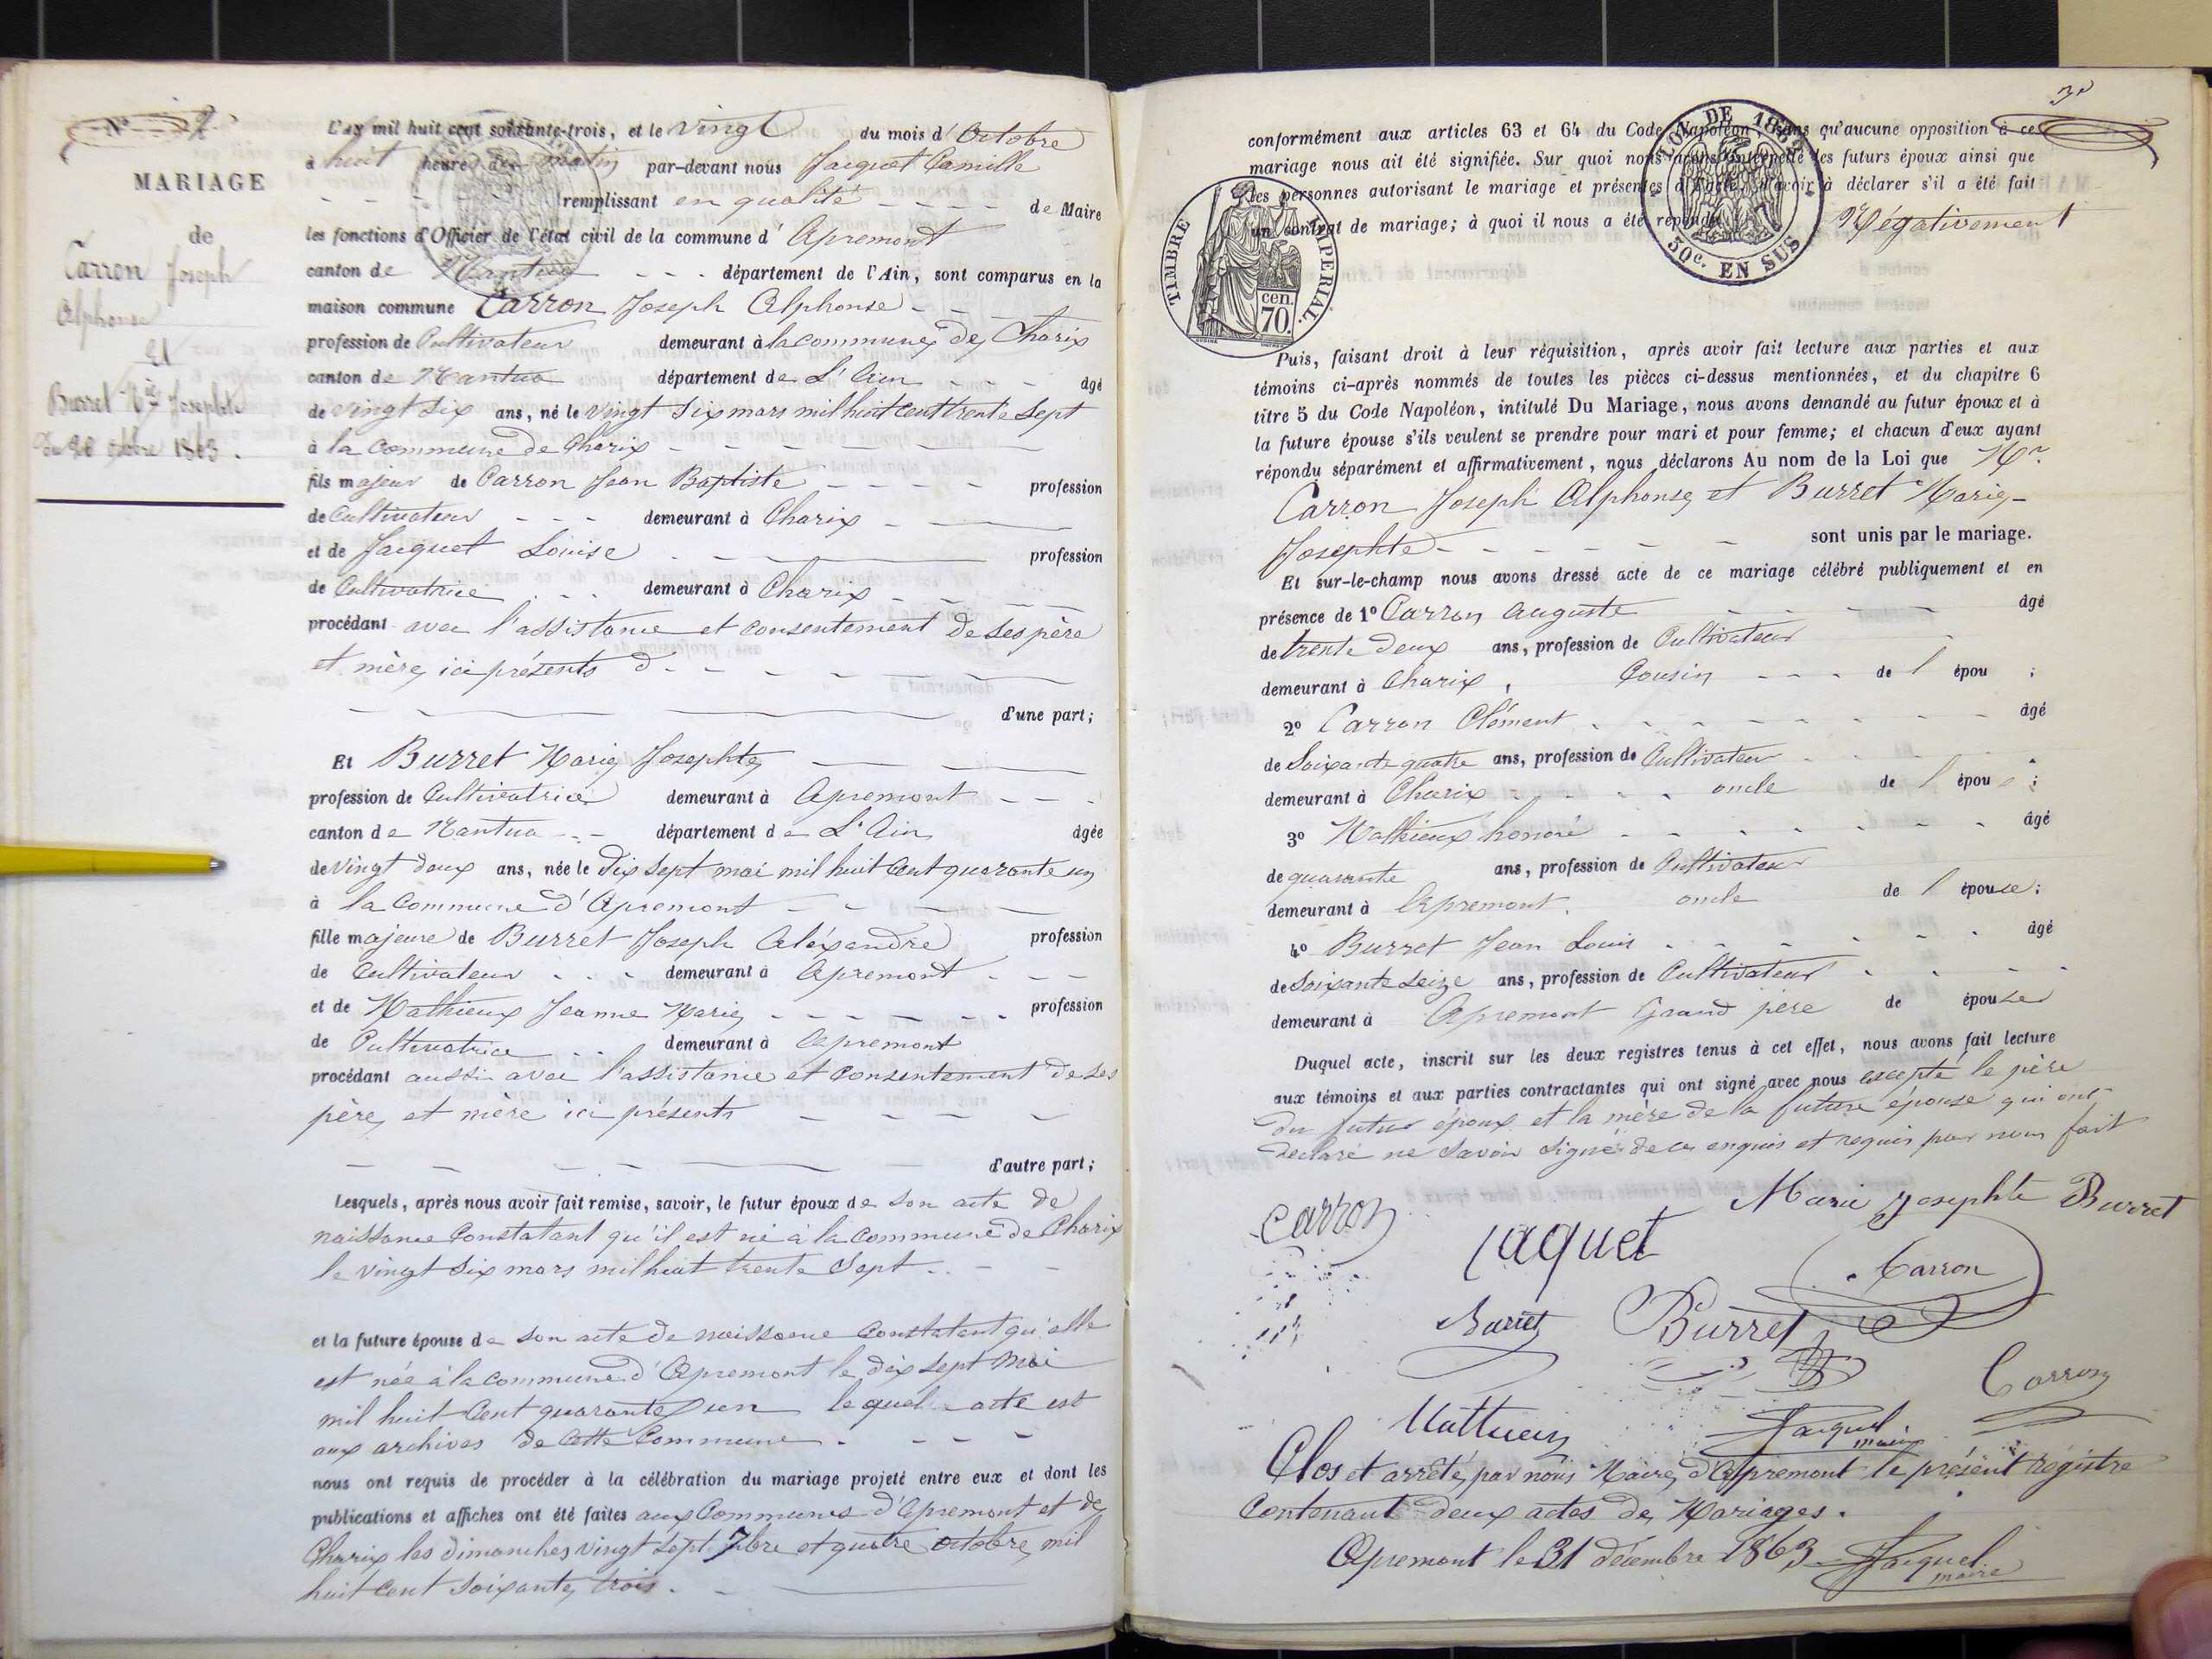 N° 2
MARIAGE
de
Carron Joseph
Alphonse
Et
Burret Mie Josephte
du 20 8bre 1863.
L'an mil huit cent soixante-trois, et le vingt du mois d'Octobre
à huit heures du matin par-devant nous Jacquet Camille
remplissant en qualité de Maire
les fonctions d'Officier de l'état civil de la commune d'Apremont
canton de Nantua département de l'Ain, sont comparus en la
maison commune Carron Joseph Alphonse
profession de Cultivateur demeurant à la commune de Charix
canton de Nantua département de L'Ain âgé
de vingt six ans, né le vingt six mars mil huit cent trente sept
à la commune de Charix
fils majeur de Carron Jean Baptiste profession
de Cultivateur demeurant à Charix
et de Jacquet Louise profession
de Cultivatrice demeurant à Charix
procédant avec l'assistance et consentement de ses père
et mère, ici présents d
d'une part;
Et Burret Marie Josephte
profession de Cultivatrice demeurant à Apremont
canton de Nantua département de L'Ain âgée
de vingt deux ans, née le dix sept mai mil huit cent quarante un
à la commune d'Apremont
fille majeure de Burret Joseph Aléxandre profession
de Cultivateur demeurant à Apremont
et de Mathieux Jeanne Marie profession
de Cultivatrice demeurant à Apremont
procédant aussi avec l'assistance et consentement de ses
père et mère ici présents
d'autre part;
Lesquels, après nous avoir fait remise, savoir, le futur époux de son acte de
naissance constatant qu'il est né à la commune de Charix
le vingt six mars mil huit trente sept
et la future épouse de son acte de naissance constatant qu'elle
est née à la commune d'Apremont le dix sept mai
mil huit cent quarante un lequel acte est
aux archives de cette commune.
nous ont requis de procéder à la célébration du mariage projeté entre eux et dont les
publications et affiches ont été faites aux communes d'Apremont et de
Charix les dimanches vingt sept 7bre et quatre octobre mil
huit cent soixante trois.
conformément aux articles 63 et 64 du Code Napoléon, sans qu'aucune opposition à ce
mariage nous ait été signifiée. Sur quoi nous avons interpellé les futurs époux ainsi que
les personnes autorisant le mariage et présentes à l'acte, d'avoir à déclarer s'il a été fait
un contrat de mariage; à quoi il nous a été répondu Négativement
TIMBRE IMPERIAL.
cen. 70.
LOI DE 1862
50c. EN SUS
Puis, faisant droit à leur réquisition, après avoir fait lecture aux parties et aux
témoins ci-après nommés de toutes les pièces ci-dessus mentionnées, et du chapitre 6
titre 5 du Code Napoléon, intitulé Du Mariage, nous avons demandé au futur époux et à
la future épouse s'ils veulent se prendre pour mari et pour femme; et chacun d'eux ayant
répondu séparément et affirmativement, nous déclarons Au nom de la Loi que Mr.
Carron Joseph Alphonse et Burret Marie
Josephte sont unis par le mariage.
Et sur-le-champ nous avons dressé acte de ce mariage célébré publiquement et en
présence de 1° Carron Auguste âgé
de trente deux ans, profession de Cultivateur
demeurant à Charix, Cousin de l'épou ;
2° Carron Clément âgé
de Soixante quatre ans, profession de Cultivateur
demeurant à Charix oncle de l'épou ;
3° Mathieux honoré âgé
de quarante ans, profession de Cultivateur
demeurant à Apremont. oncle de l'épouse;
4° Burret Jean Louis âgé
de Soixante seize ans, profession de Cultivateur
demeurant à Apremont Grand père de épouse
Duquel acte, inscrit sur les deux registres tenus à cet effet, nous avons fait lecture
aux témoins et aux parties contractantes qui ont signé avec nous excepté le père
du futur époux et la mère de la future épouse qui ont
déclaré ne savoir signé de ce enquis et requis par nous fait
Carron Marie Josephte Burret
Jaquet
Carron
Burret Burret
Carron
Mathieu Jacquet maire
Clos et arrêté, par nous Maire, d'Apremont le présent registre
Contenant deux actes de Mariages.
Apremont le 31 décembre 1863 Jacquet
maire